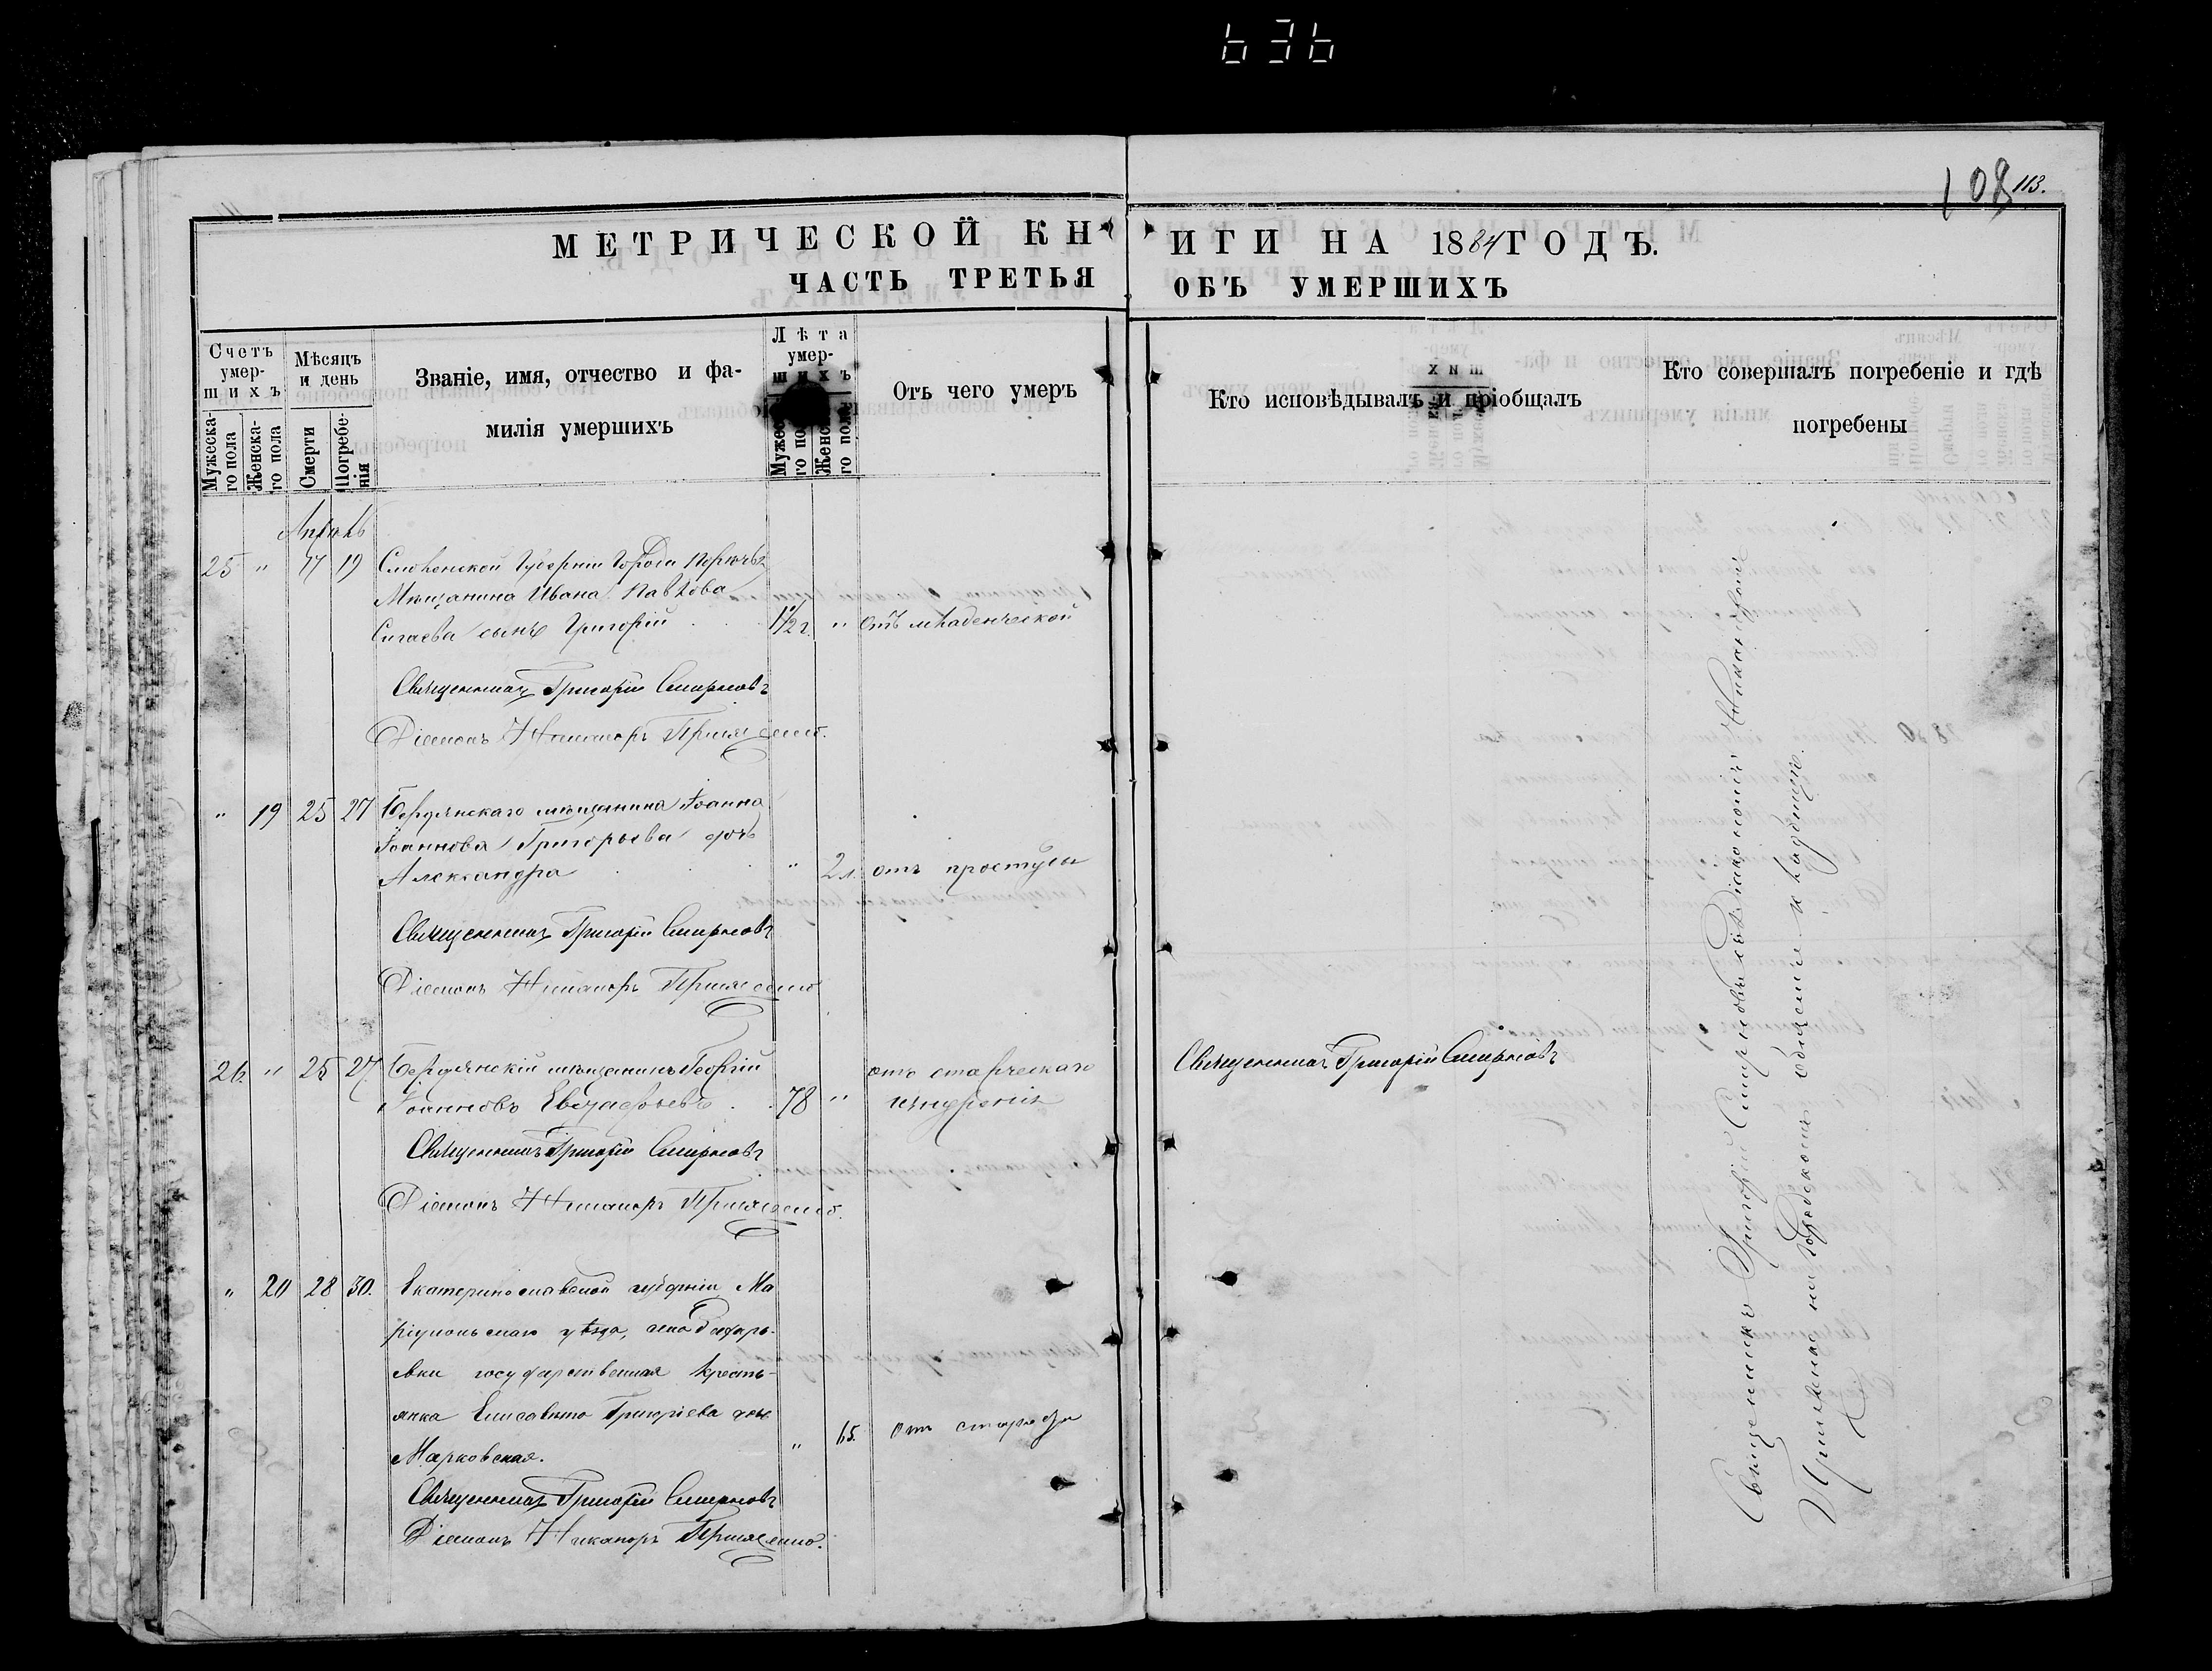 636
108 113.
МЕТРИЧЕСКОЙ КНИГИ НА 1884 ГОДЪ.
ЧАСТЬ ТРЕТЬЯ ОБЪ УМЕРШИХЪ
Счетъ умер-
шихъ
Мужеска-
го пола
Женска-
го пола
Мѣсяцъ
и день
Смерти
Погребе-
нія
Званіе, имя, отчество и фа-
милія умершихъ
Лѣта
умер-
шихъ
Отъ чего умеръ
Кто исповѣдывалъ и пріобщалъ
Кто совершалъ погребеніе и гдѣ
погребены
Апрѣль
25 " 17 19 Смоленской Губерніи Города Порѣчья
Мѣщанина Ивана Павлова
Сигаева сынъ Григорій 1 1/2 г. " отъ младенческой
Священникъ Григорій Смирновъ
Діаконъ Никаноръ
" 19 25 27 Бердянскаго мѣщанина Іоанна
Іоаннова Григорьева дочь
Александра " 2 л. отъ простуды
Священникъ Григорій Смирновъ
Діаконъ Никаноръ
26. " 25 27 Бердянскій мѣщанинъ Георгій отъ старческаго
Іоанновъ 78 "
Священникъ Григорій Смирновъ
Священникъ Григорій Смирновъ
Діаконъ Никаноръ
" 20 28 30. Екатеринославской губерніи Ма
ріупольскаго уѣзда, села
государственная кресть-
янка Елисавета Григоріева дочь
Марковская. " 65. отъ старости
Священникъ Григорій Смирновъ
Діаконъ Никаноръ
Священникъ Григорій Смирновъ съ Діакономъ Никаноромъ
на Городскомъ общемъ кладбищѣ.